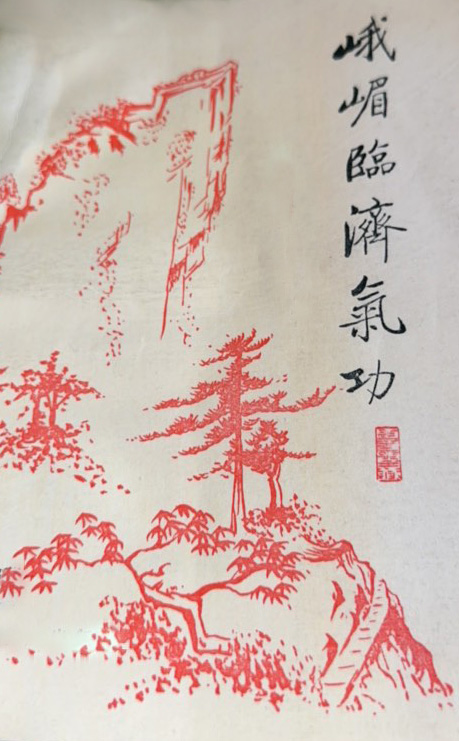 峨嵋臨濟氣功